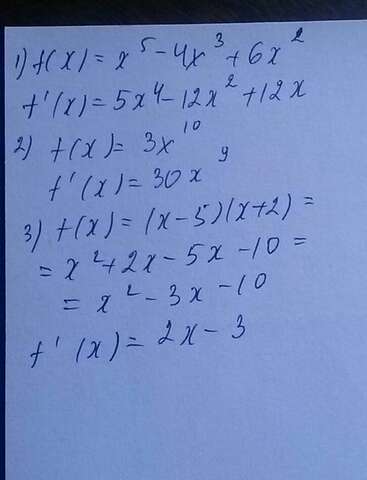 1) f(x) = x⁵ - 4x³ + 6x²
f'(x) = 5x⁴ - 12x² + 12x
2) f(x) = 3x¹⁰
f'(x) = 30x⁹
3) f(x) = (x-5)(x+2) =
= x² + 2x - 5x - 10 =
= x² - 3x - 10
f'(x) = 2x - 3